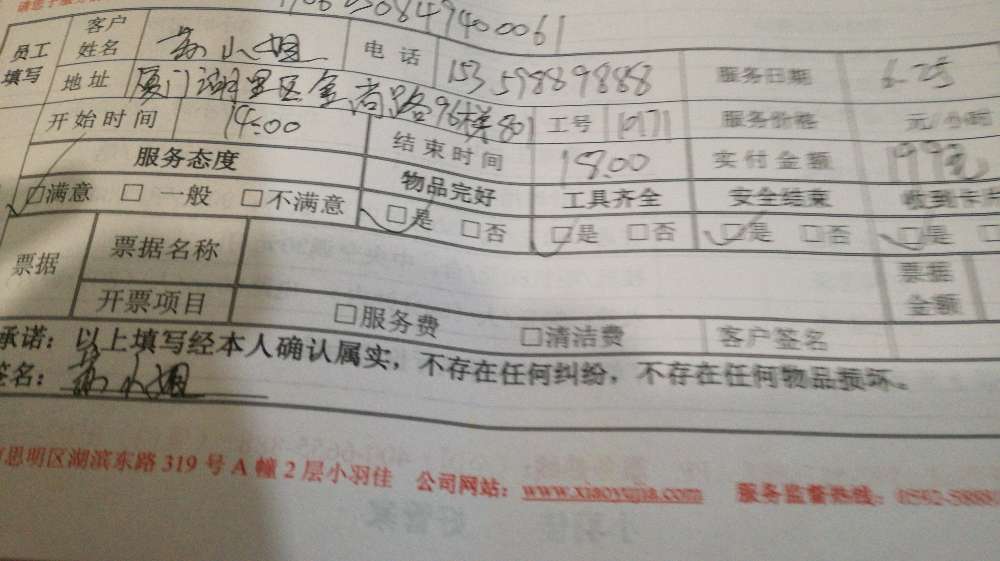 0849400061
员工填写 客户姓名 苏小姐 电话 15359889888 服务日期 6.25
地址 厦门湖里区金尚路96楼801 工号 10171 服务价格 元/小时
开始时间 14:00 结束时间 18.00 实付金额
服务态度 物品完好 工具齐全 安全结束 收到卡片
□满意 □一般 □不满意 □是 □否 □是 □否 □是 □否 □是 □
票据 票据名称 票据金额
开票项目 □服务费 □清洁费 客户签名
承诺：以上填写经本人确认属实，不存在任何纠纷，不存在任何物品损坏。
签名：苏小姐
思明区湖滨东路319号A幢2层小羽佳 公司网站：www.xiaoyujia.com 服务监督热线：0592-5888